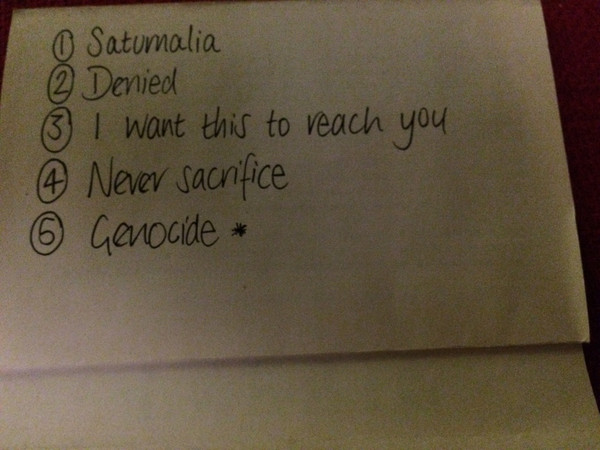 ① Saturnalia
② Denied
③ I want this to reach you
④ Never sacrifice
⑤ Genocide *